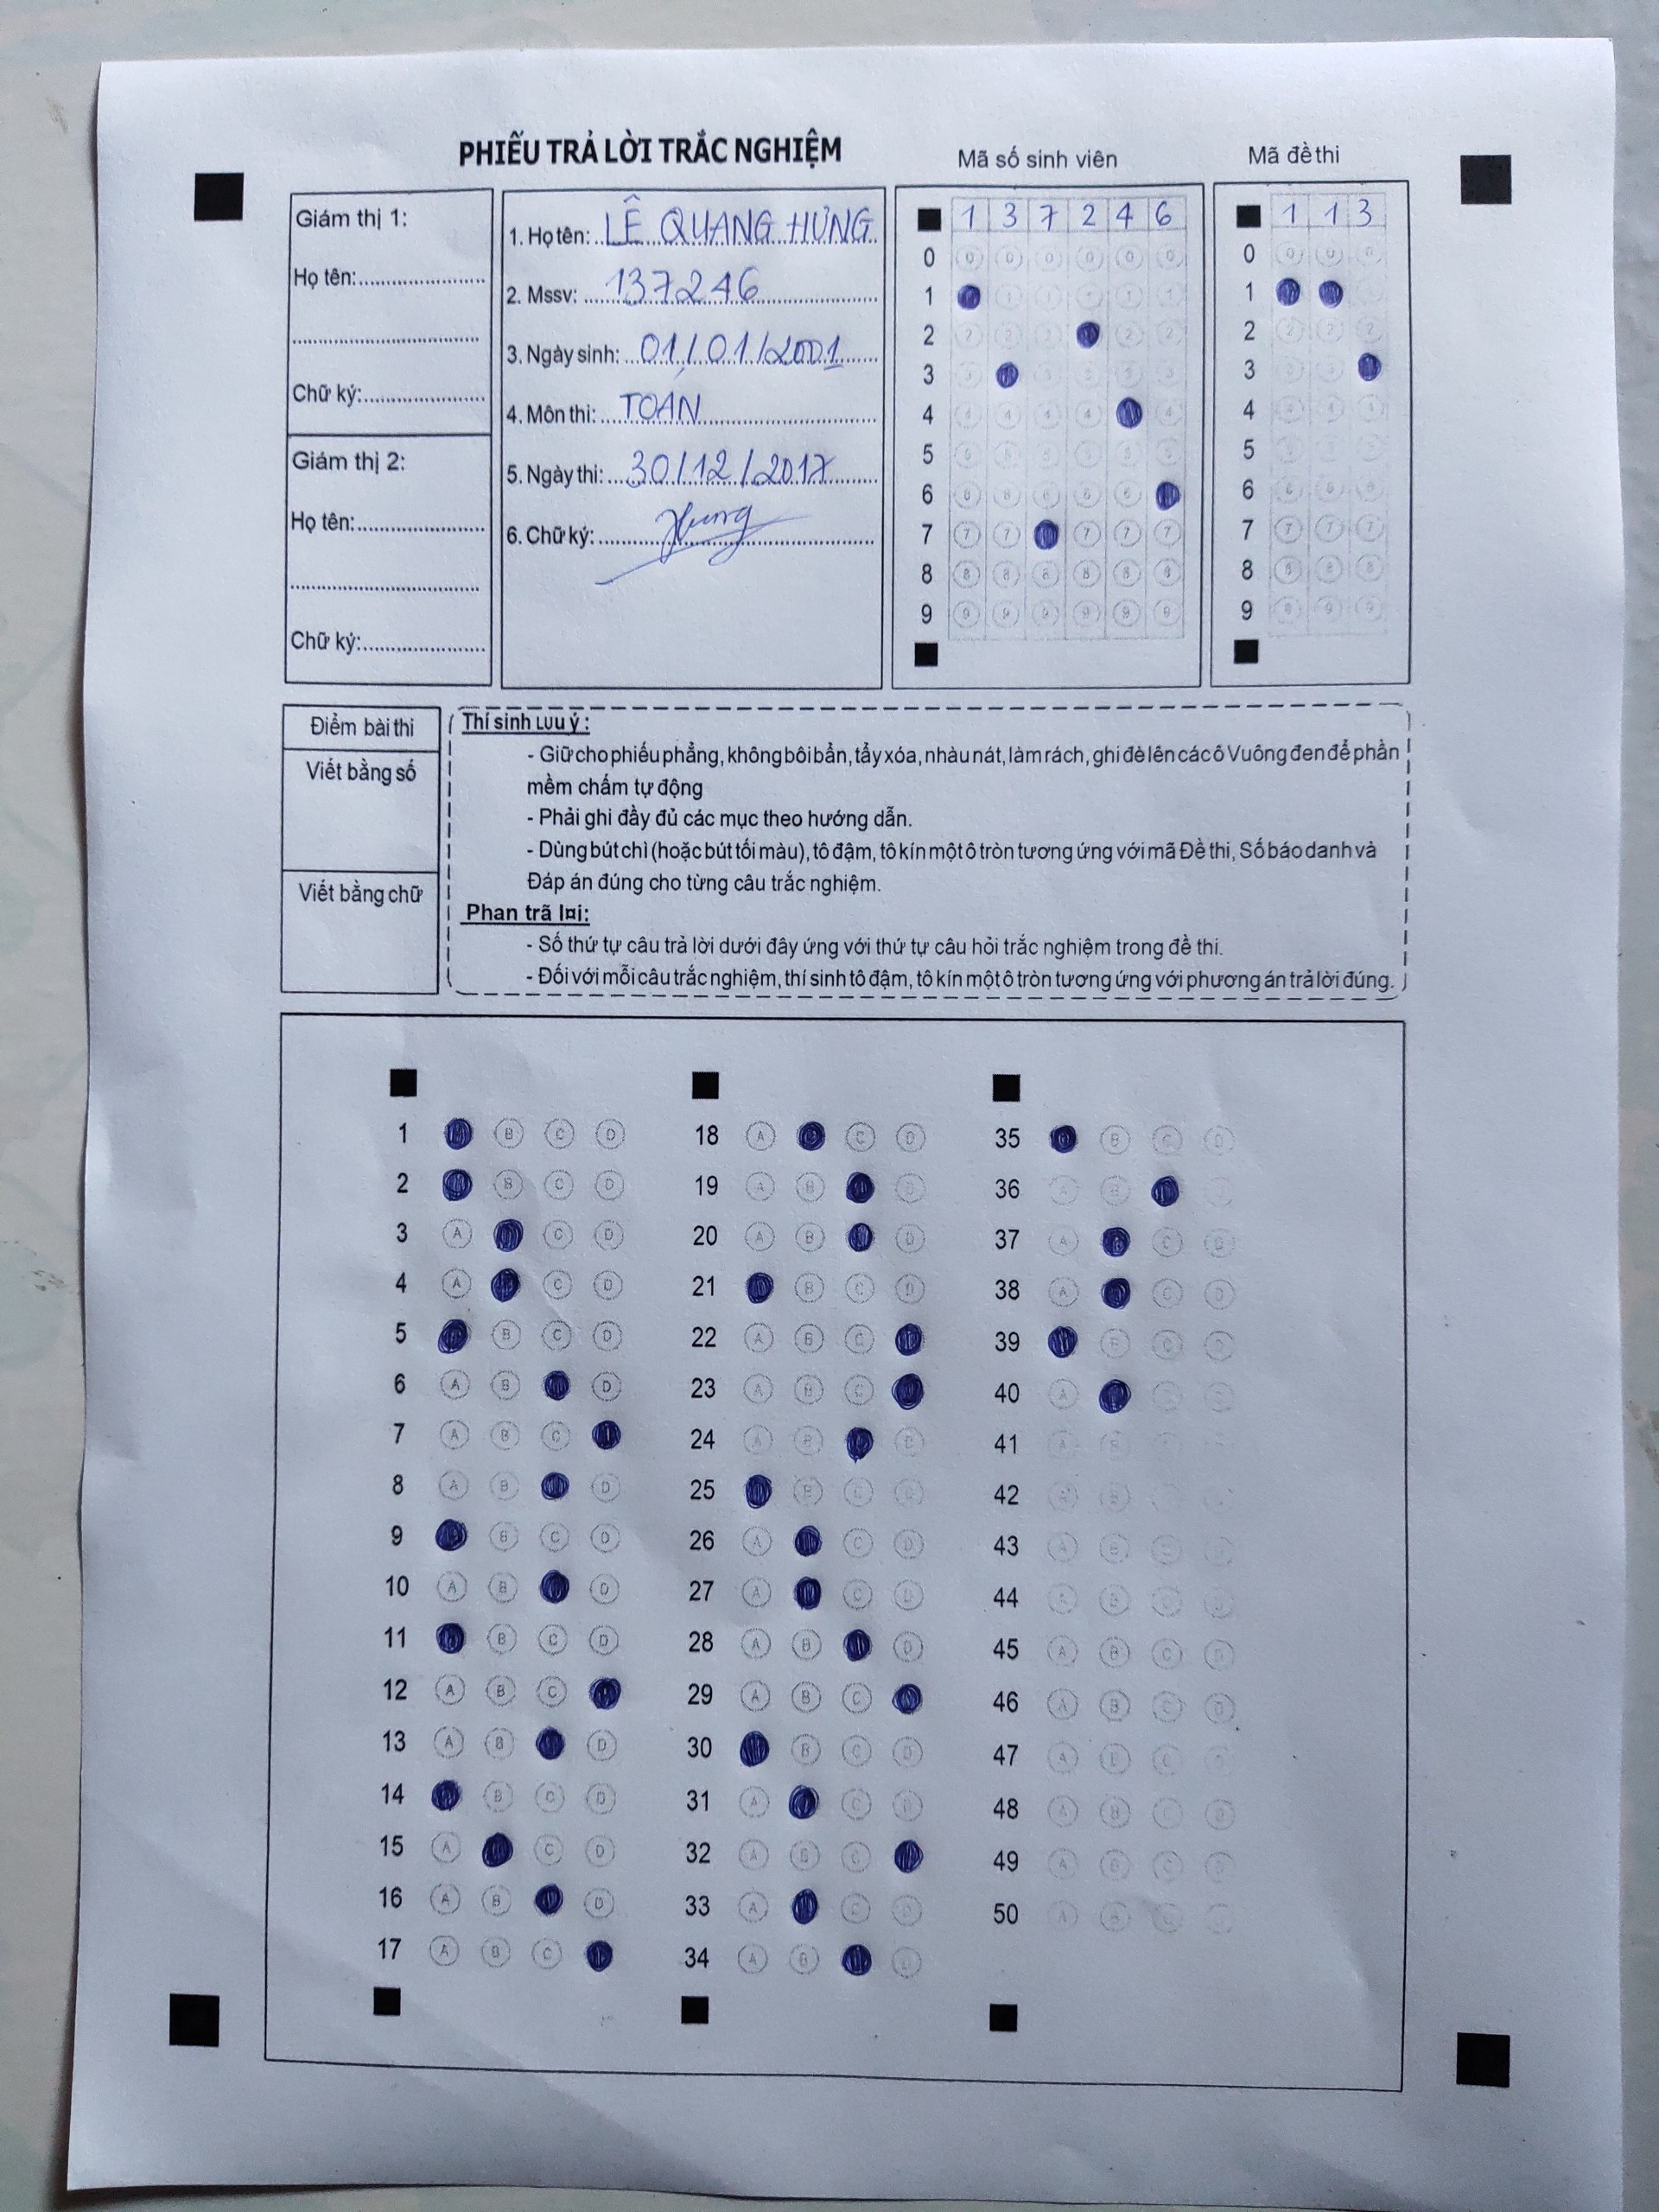 PHIẾU TRẢ LỜI TRẮC NGHIỆM
Mã số sinh viên
Mã đề thi
Giám thị 1:
Họ tên:
Chữ ký:
Giám thị 2:
Họ tên:
Chữ ký:
1. Họ tên: LÊ QUANG HƯNG
2. Mssv: 137246
3. Ngày sinh: 01/01/2001
4. Môn thi: TOÁN
5. Ngày thi: 30/12/2017
6. Chữ ký: Hưng
1 3 7 2 4 6
0
1
2
3
4
5
6
7
8
9
1 1 3
0
1
2
3
4
5
6
7
8
9
Điểm bài thi
Viết bằng số
Viết bằng chữ
Thí sinh Lưu ý :
- Giữ cho phiếu phẳng, không bôi bẩn, tẩy xóa, nhàu nát, làm rách, ghi đè lên các ô Vuông đen để phần
mềm chấm tự động
- Phải ghi đầy đủ các mục theo hướng dẫn.
- Dùng bút chì (hoặc bút tối màu), tô đậm, tô kín một ô tròn tương ứng với mã Đề thi, Số báo danh và
Đáp án đúng cho từng câu trắc nghiệm.
Phan trã l¤i:
- Số thứ tự câu trả lời dưới đây ứng với thứ tự câu hỏi trắc nghiệm trong đề thi.
- Đối với mỗi câu trắc nghiệm, thí sinh tô đậm, tô kín một ô tròn tương ứng với phương án trả lời đúng.
1 B C D
2 B C D
3 A C D
4 A C D
5 B C D
6 A B D
7 A B C
8 A B D
9 B C D
10 A B D
11 B C D
12 A B C
13 A B D
14 B C D
15 A C D
16 A B D
17 A B C
18 A C D
19 A B D
20 A B D
21 B C D
22 A B C
23 A B C
24 A B D
25 B C D
26 A C D
27 A C D
28 A B D
29 A B C
30 B C D
31 A C D
32 A B C
33 A C D
34 A B D
35 B C D
36 A B
37 A C D
38 A C D
39 B C D
40 A
41 A B
42 A B
43 A B C D
44 A B C D
45 A B C D
46 A B C D
47 A B C D
48 A B C D
49 A B C D
50 A B C